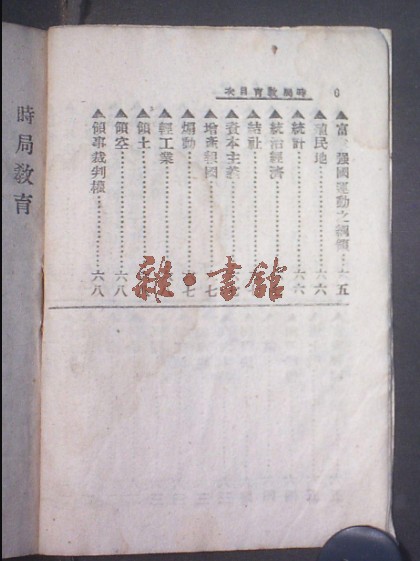 時局教育目次
6
▲富国强國運動之綱領…六五
▲殖民地…六六
▲統計…六六
▲統治經濟
▲結社
▲資本主義
▲增產報國…七
▲煽動…七
▲輕工業
▲領土
▲領空…六八
▲領事裁判權…六八
時局教育
雅書館